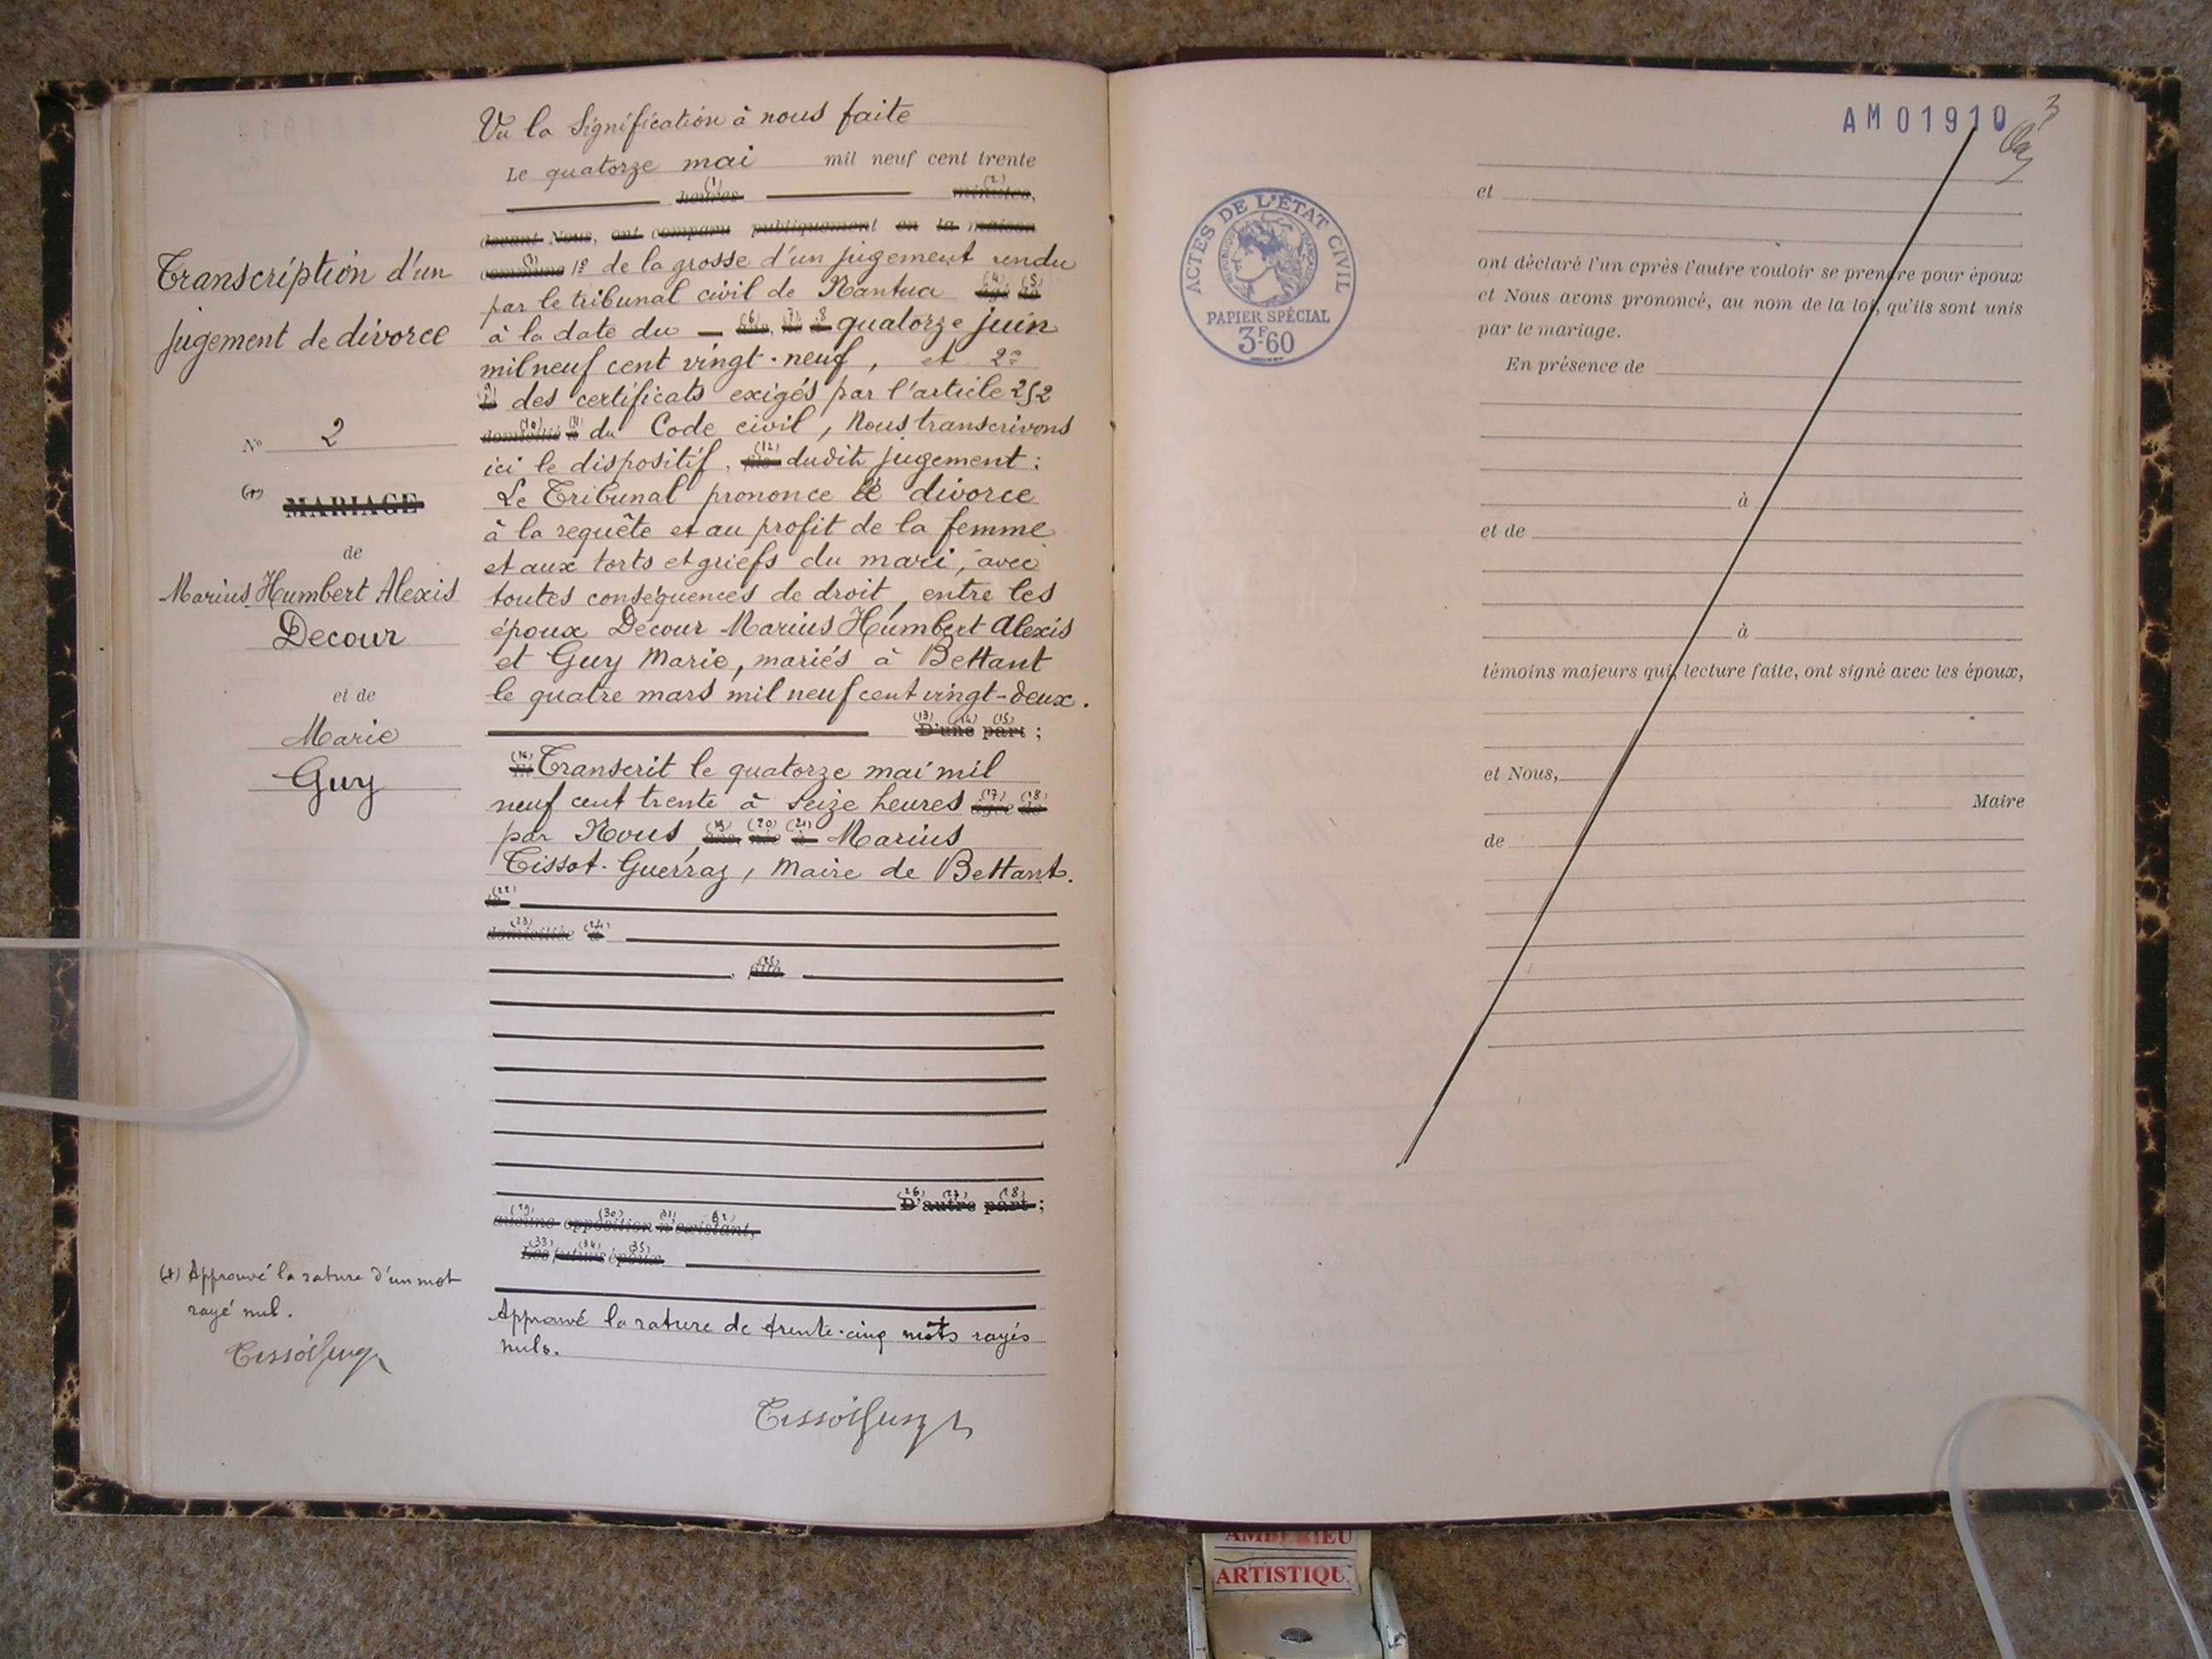 Transcription d'un
jugement de divorce
N° 2
(+) MARIAGE
de
Marius Humbert Alexis
Decour
et de
Marie
Guy
(+) Approuvé la rature d'un mot
rayé nul.
Vu la Signification à nous faite
Le quatorze mai mil neuf cent trente
heures (1) minutes, (2)
devant Nous, ont comparu publiquement en la maison
commune (3) 1º de la grosse d'un jugement rendu
par le tribunal civil de Nantua âgé (4) de (5)
à la date du (6) (7) (8) quatorze juin
mil neuf cent vingt-neuf, et 2º
(9) des certificats exigés par l'article 252
domicilié (10) à (11) du Code civil, Nous transcrivons
ici le dispositif, fils (12) dudit jugement :
Le Tribunal prononce le divorce
à la requête et au profit de la femme
et aux torts et griefs du mari, avec
toutes conséquences de droit, entre les
époux Décour Marius Humbert Alexis
et Guy Marie, mariés à Bettant
le quatre mars mil neuf cent vingt-deux.
(13) (14) (15) D'une part ;
(16) Et Transcrit le quatorze mai mil
neuf cent trente à Seize heures âgée (17) de (18)
par Nous, (19) née (20) à (21) Marius
Tissot-Guerraz, Maire de Bettant.
(22)
domiciliée (23) à (24)
, fille (25)
(26) (27) (28) D'autre part ;
(29) (30) (31) (32) aucune opposition n'existant,
(33) (34) (35) Les futurs époux
Approuvé la rature de trente-cinq mots rayés
nuls.
AM01910
3
et
ont déclaré l'un cprès l'autre vouloir se prendre pour époux
et Nous avons prononcé, au nom de la loi, qu'ils sont unis
par le mariage.
En présence de
à
et de
à
témoins majeurs qui, lecture faite, ont signé avec les époux,
et Nous,
Maire
de
ACTES DE L'ÉTAT CIVIL
RÉPUBLIQUE FRANÇAISE
PAPIER SPÉCIAL
3F60
AMBERIEU
ARTISTIQU